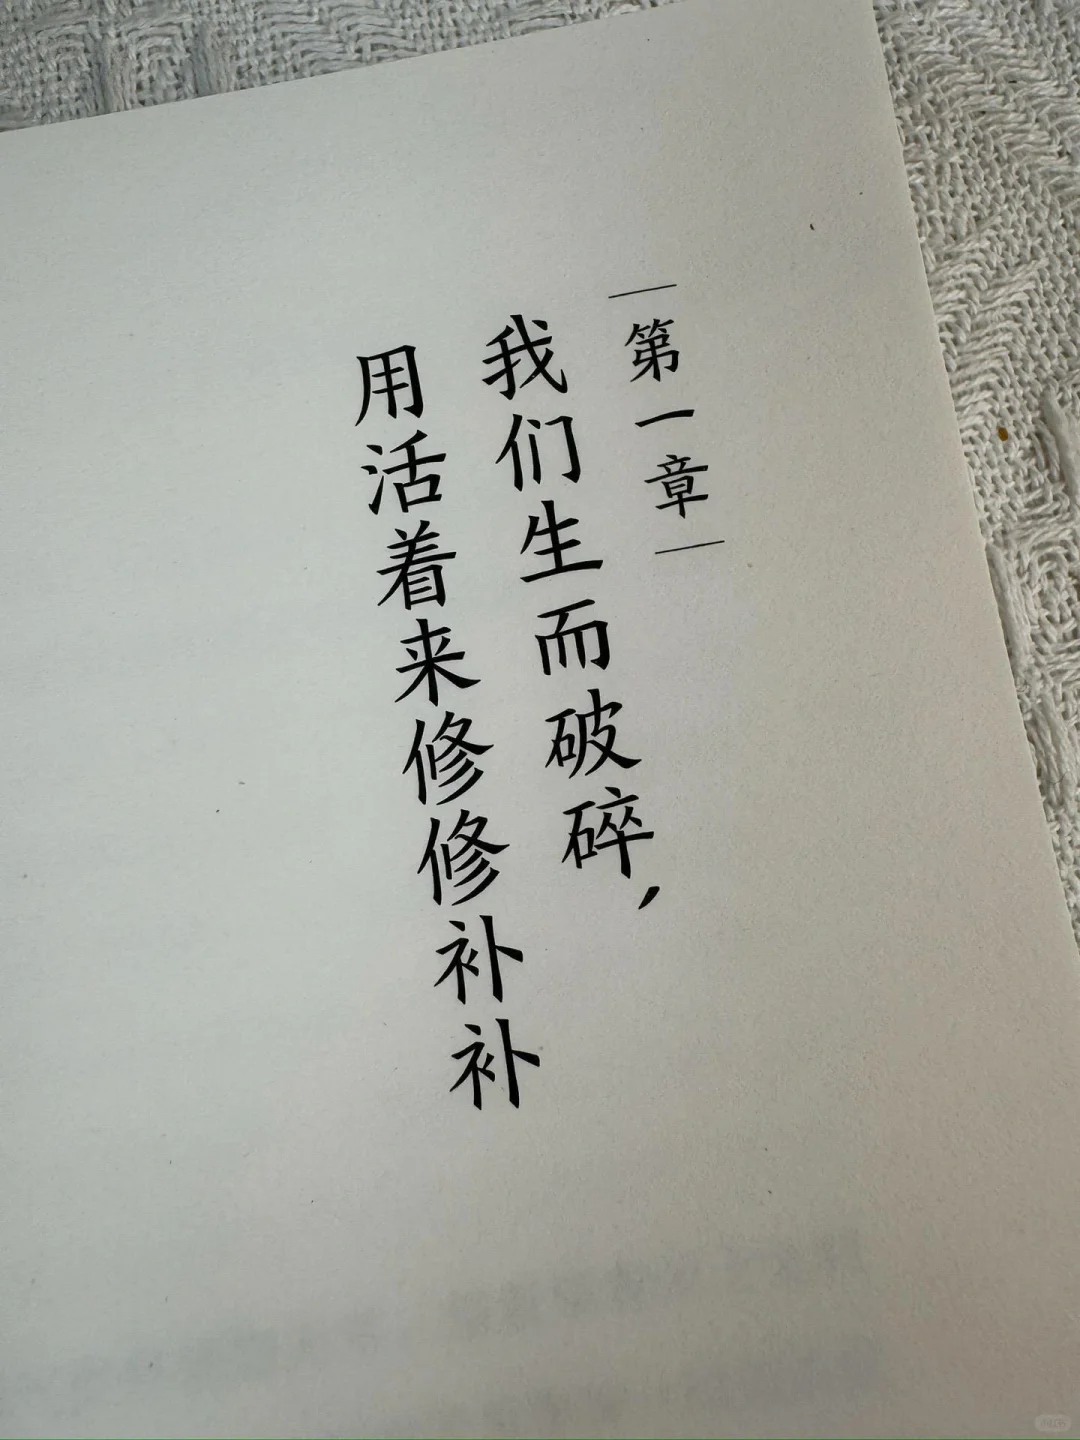 第一章
我们生而破碎，
用活着来修修补补